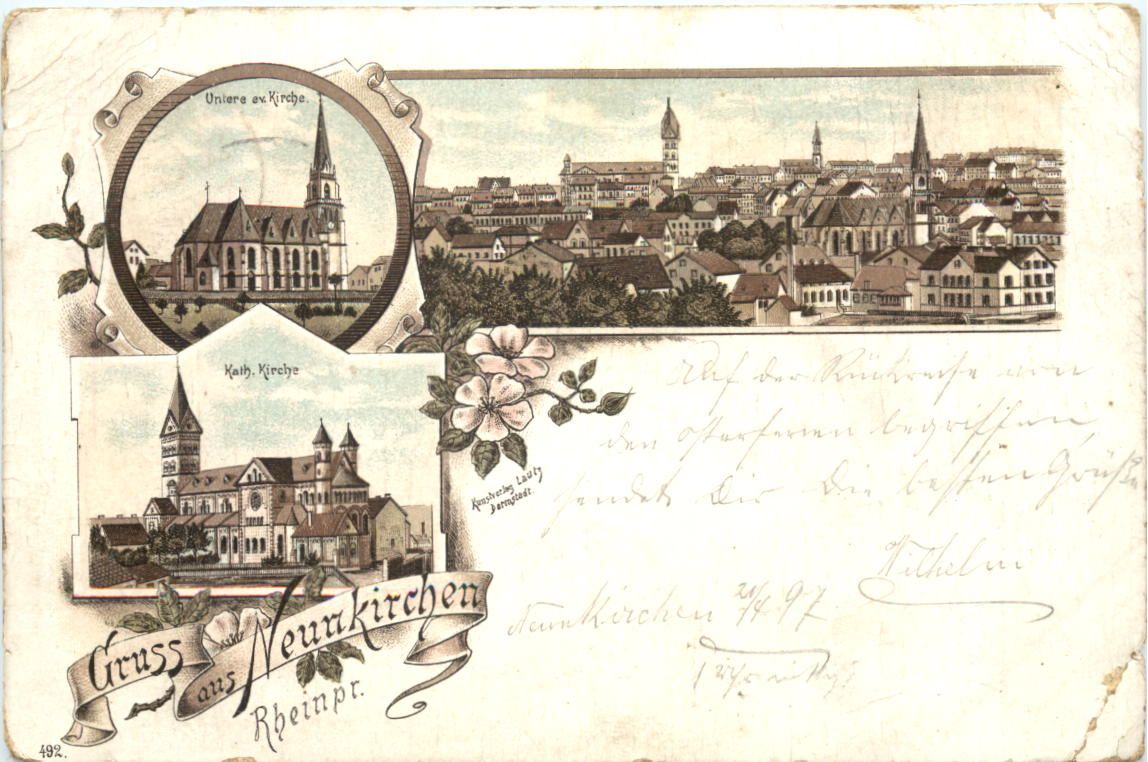 Untere ev. Kirche.
Kath. Kirche
Kunstverlag Lautz
Darmstadt.
Auf der Rückreise von
den Osterferien begriffen,
sendet Dir die besten Grüße
Wilhelm
Neunkirchen 20/4 97
1 Uhr
Gruss
aus Neunkirchen
Rheinpr.
492.